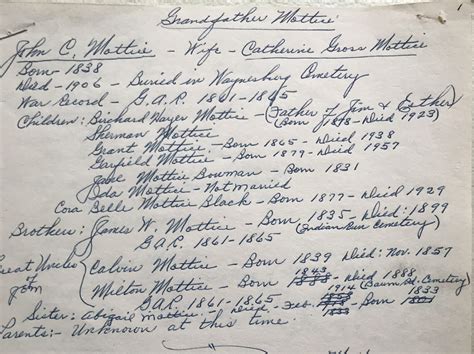 1
Grandfather Mottice
John C. Mottice - Wife - Catherine Gross Mottice
Born - 1838
Died - 1906 - Buried in Waynesburg Cemetery
War Record - G.A.R. 1861-1865
Children: Birchard Hayes Mottice - (Father of Jim & Esther)
(Born 1878 - Died 1923)
Sherman Mottice
Grant Mottice - Born 1865 - Died 1938
Garfield Mottice - Born 1879 - Died 1957
Mottice Bowman - Born 1831
Ida Mottice - Not married
Cora Belle Mottice Black - Born 1877 - Died 1929
Brothers: James W. Mottice - Born 1835 - Died: 1899
G.A.R. 1861-1865 (Indian Run Cemetery)
Great Uncles Calvin Mottice - Born 1839 Died: Nov. 1857
John Milton Mottice - Born 1843 Died 1888
G.A.R. 1861-1865 1914 (Baum Rd. Cemetery)
Sister: Abigail Mottice - Died Feb. - Born 1833
Parents: - Unknown at this time.